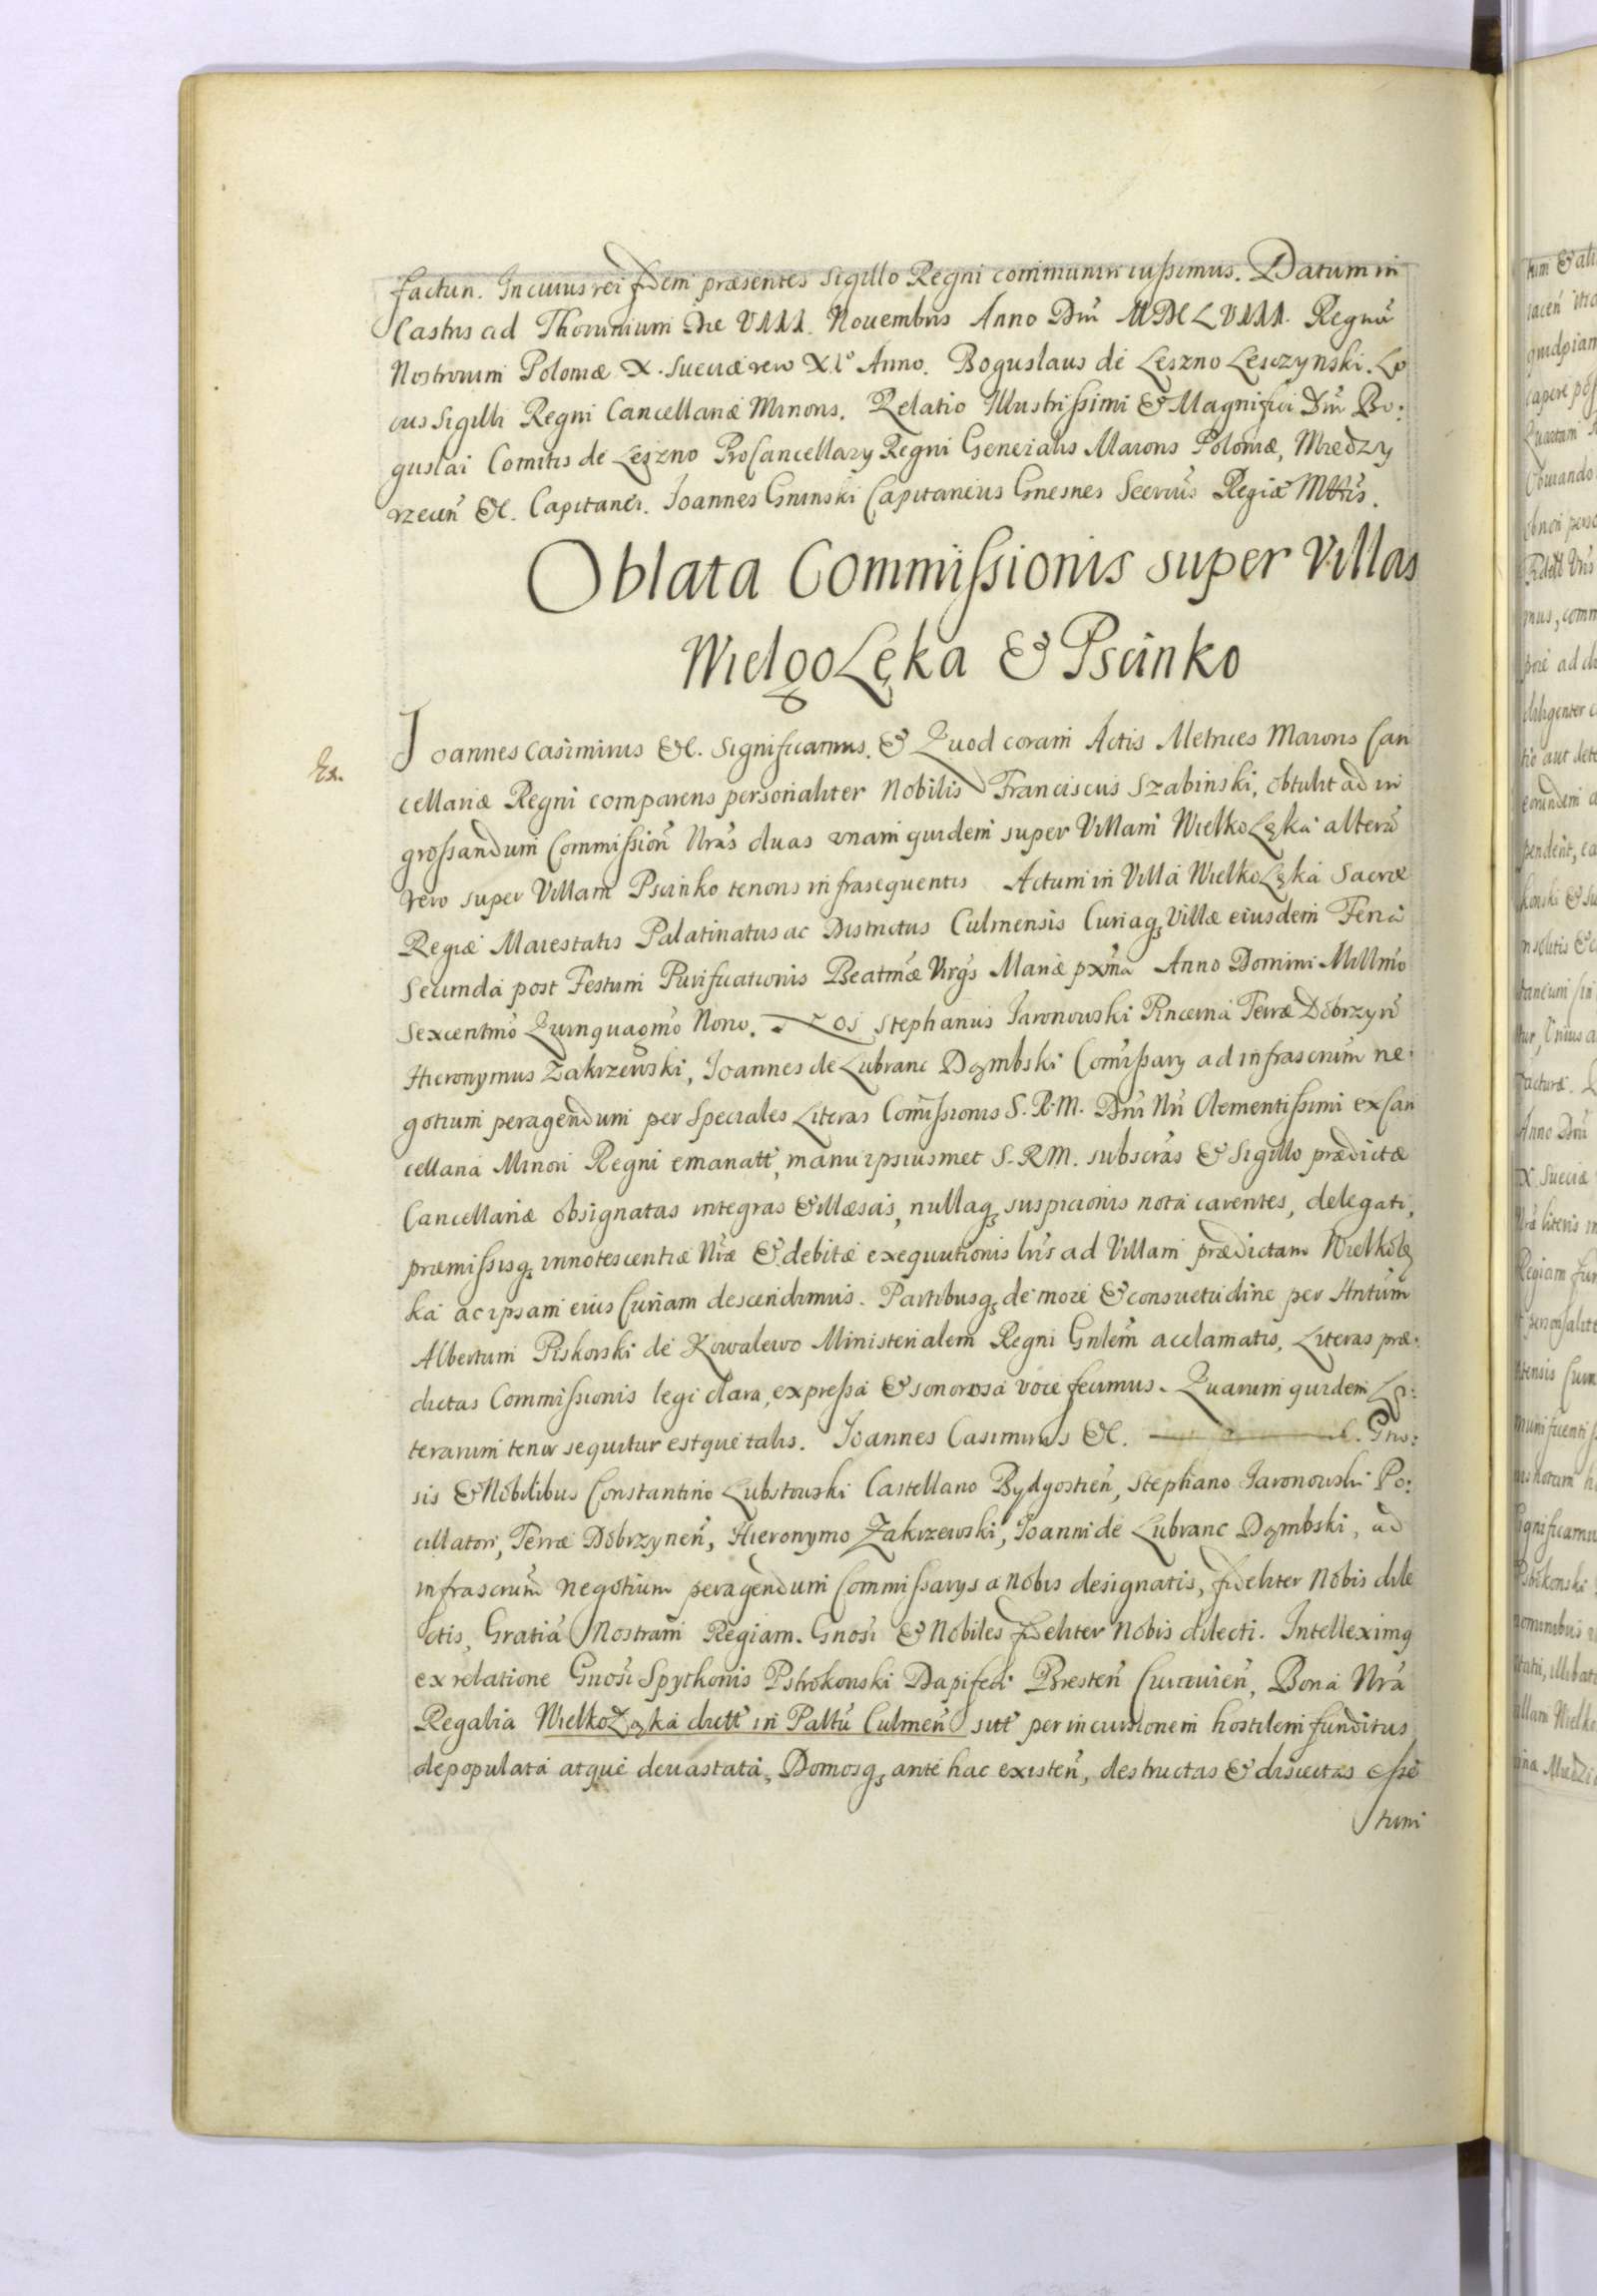 factun. In cuius rei fidem præsentes Sigillo Regni communiri iussimus. Datum in
Castris ad Thorunium Die VIII. Nouembris Anno Dni MDCLVIII. Regnor̃
Nostrorum Poloniæ X. Sueciæ vero XIº Anno. Boguslaus de Leszno Lesczynski. Lo
cus Sigilli Regni Cancellariæ Minoris. Relatio Illustrißimi & Magnifici Dni Bo:
guslai Comitis de Leszno ProCancellarij Regni Generalis Maioris Poloniæ, Miedzy
rzecen̄ &c. Capitanei. Ioannes Gninski Capitaneus Gnesnes Secrius Regiæ Mttis.
Oblata Commißionis super Villas
WielgoLęka & Pscinko
Ex.
Ioannes Casimirus &c. Significamus. & Quod coram Actis Metrices Maioris Can
cellariæ Regni comparens personaliter Nobilis Franciscus Szabinski, obtulit ad in
großandum Commißion̄ Nrãs duas vnam quidem super Villam WielkoLąka alterã
vero super Villam Pscinko tenoris infrasequentis Actum in Villa WielkoLąka Sacræ
Regiæ Maiestatis Palatinatus ac Districtus Culmensis Curiaqz Villæ eiusdem Feria
Secunda post Festum Purificationis Beatmæ Virgs Mariæ pxma Anno Domini Millmo
Sexcentmo Quinquagmo Nono. Nos Stephanus Iaronowski Pincerna Terræ Dobrzyn̄
Hieronymus Zakrzewski, Ioannes de Lubranc Dąmbski Comißarij ad infrascrum ne:
gotium peragendum per Speciales Literas Comißionis S. R. M. Dni Nri Clementißimi ex Can
cellaria Minori Regni emanatt, manu ipsiusmet S. R M. subscrãs & Sigillo prædictæ
Cancellariæ obsignatas integras & illæsas, nullaqz suspicionis nota carentes, delegati,
præmißisqz innotescentiæ Nræ & debitæ exequutionis lris ad Villam prædictam Wielkolą
ka ac ipsam eius Curiam descendimus. Partibusqz de more & consuetudine per Hntum
Albertum Piskorski de Kowalewo Ministerialem Regni Gnlem acclamatis, Literas præ:
dictas Commißionis legi clara, expreßa & sonorosa voce fecimus. Quarum quidem Li:
terarum tenor sequitur estque talis. Ioannes Casimirus &c. Gno:
sis & Nobilibus Constantino Lubstowski Castellano Bydgostien̄, Stephano Iaronowski Po:
cillatori, Terræ Dobrzynen̄, Hieronymo Zakrzewski, Ioanni de Lubranc Dąmbski, ad
infrascrum negotium peragendum Commißarijs a Nobis designatis, fideliter Nobis dile
ctis, Gratiã Nostram Regiam. Gnosi & Nobiles fideliter Nobis dilecti. Intelleximq
ex relatione Gnosi Spytkonis Pstrokonski Dapiferi Bresten̄ Cuiauien̄, Bona Nra
Regalia WielkoLąka dictt in Paltu Culmen̄ sitt per incursionem hostilem funditus
depopulata atque deuastata, Domosqz ante hac existen̄, destructas & disiectas eße
tum